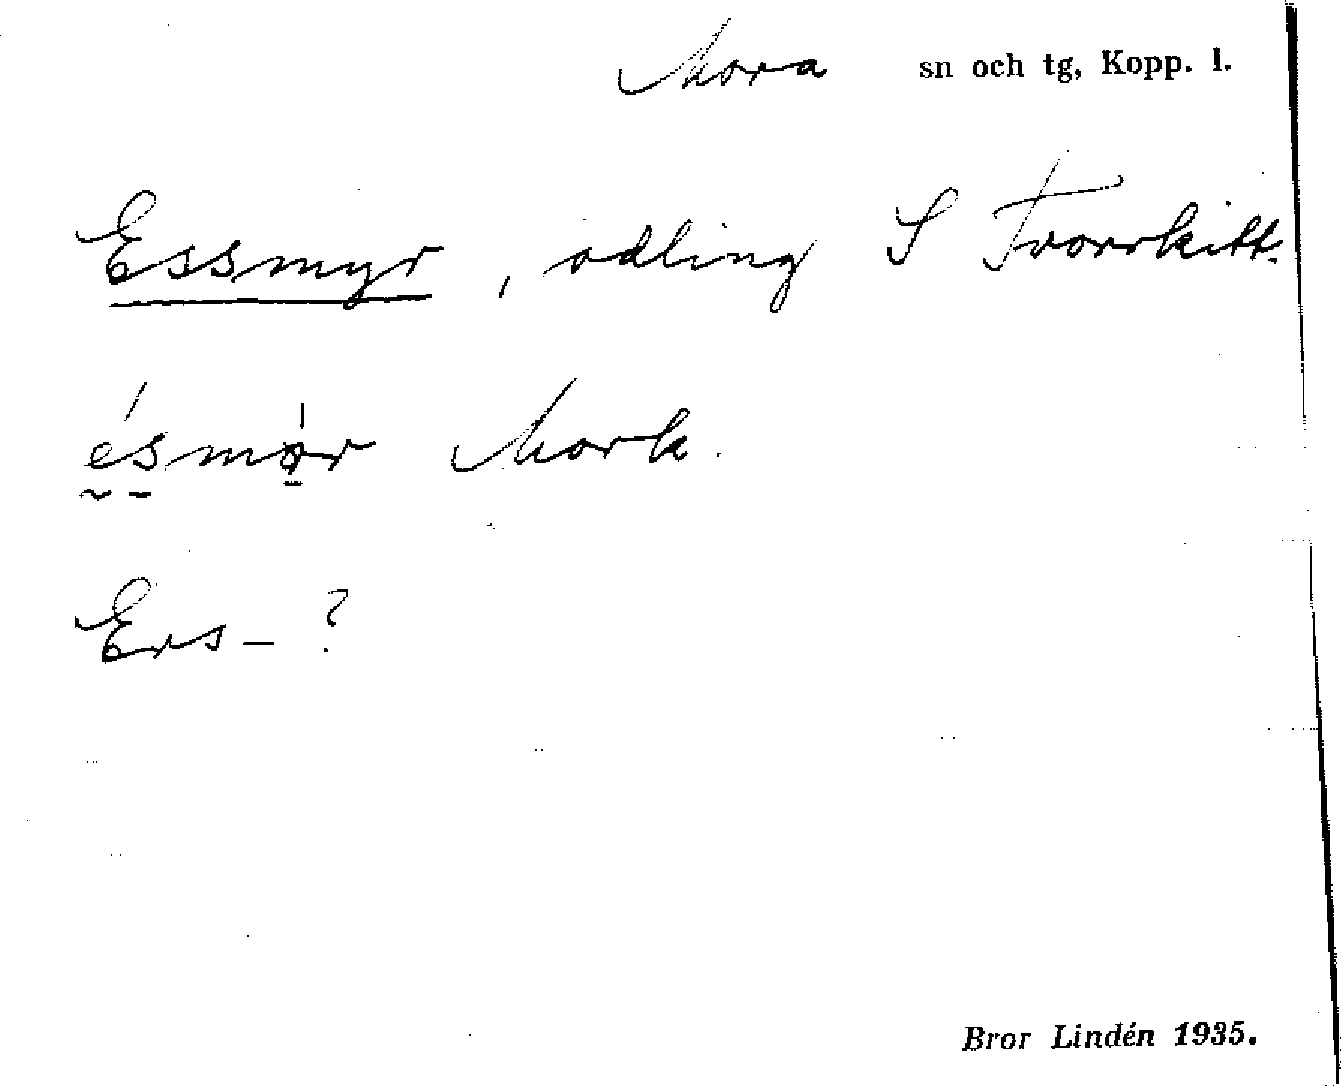 Mora sn och tg, Kopp. l.
Essmyr, odling S Tvorrkitt.
ésmör Mork.
Ers- ?
Bror Lindén 1935.